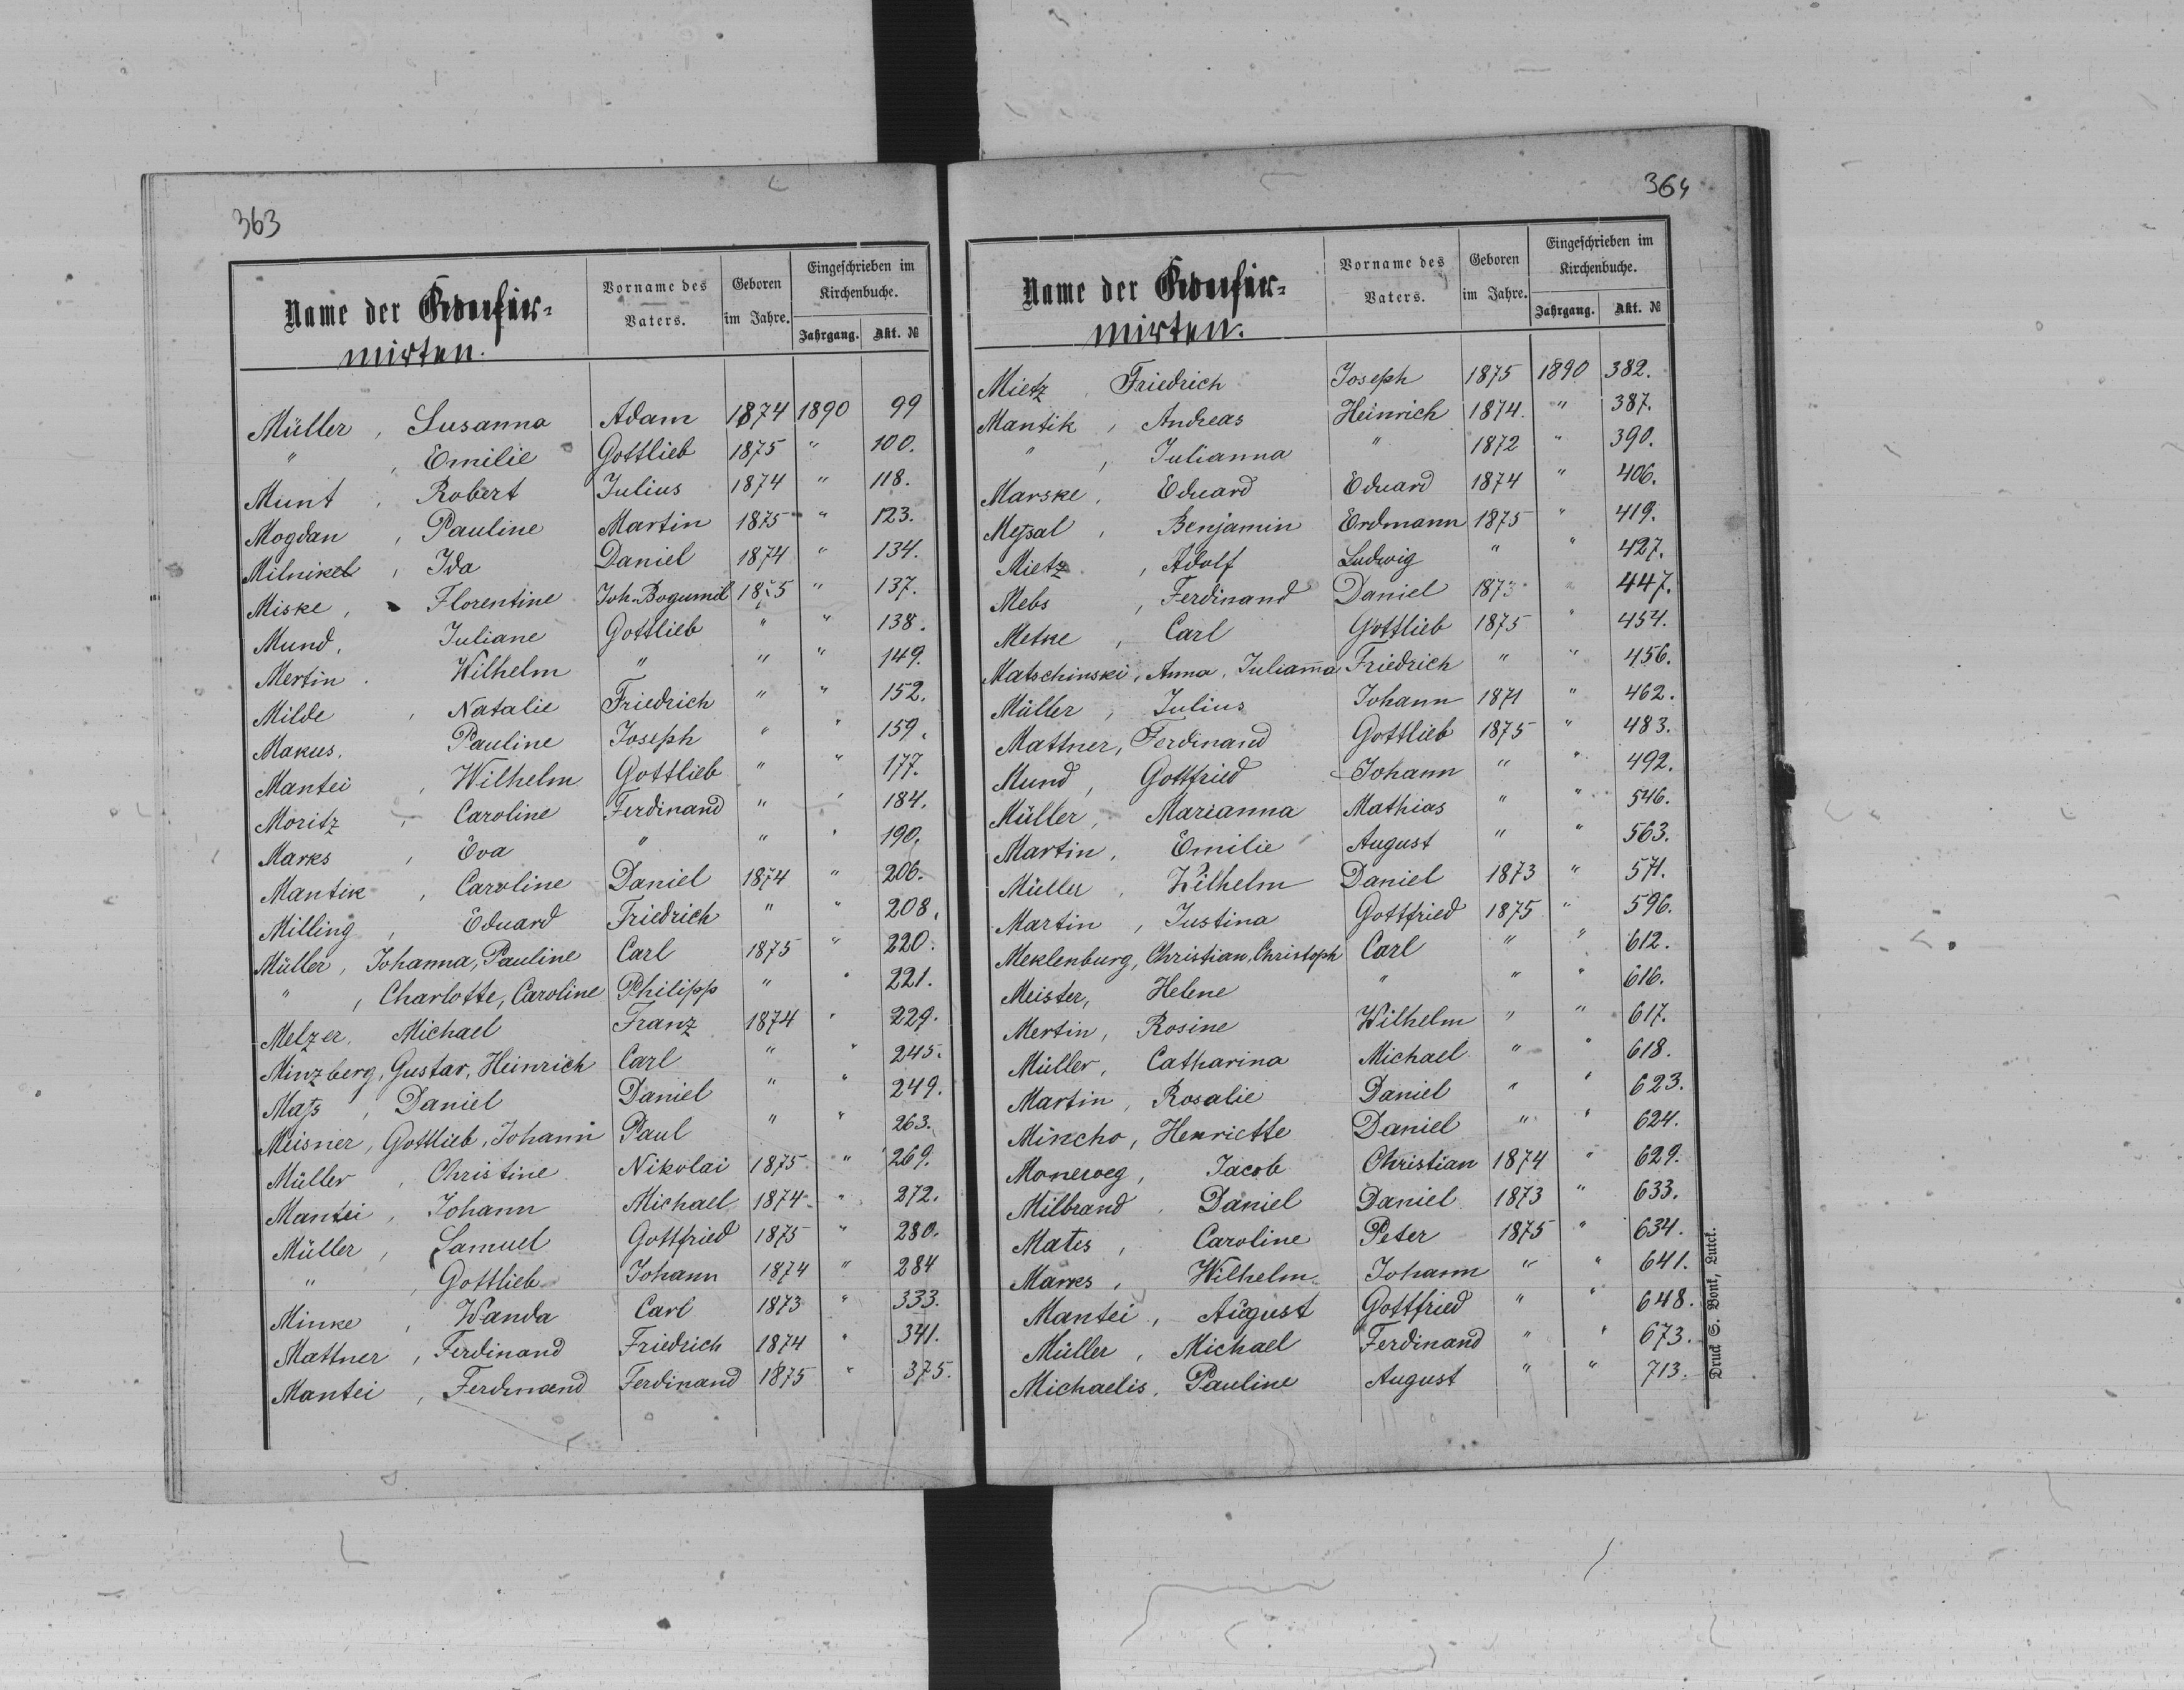 363
Name der Confir-
mirten.
Vorname des
Vaters.
Geboren
im Jahre.
Eingeschrieben im
Kirchenbuche.
Jahrgang. Akt. №
Müller, Susanna Adam 1874 1890 99
" , Emilie Gottlieb 1875 " 100.
Munt, Robert Julius 1874 " 118.
Mogdan, Pauline Martin 1875 " 123.
Milnikel, Ida Daniel 1874 " 134.
Miske, Florentine Joh. Bogumil 1875 " 137.
Mund, Juliane Gottlieb " " 138.
Mertin. Wilhelm " " " 149.
Milde, Natalie Friedrich " " 152.
Makus, Pauline Joseph " " 159.
Mantei, Wilhelm Gottlieb " " 177.
Moritz, Caroline Ferdinand " " 184.
Marks, Eva " " " 190.
Mantik, Caroline Daniel 1874 " 206.
Milling, Eduard Friedrich " " 208.
Müller, Johanna, Pauline Carl 1875 " 220.
" , Charlotte, Caroline Philipp " " 221.
Melzer, Michael Franz 1874 " 229.
Minzberg, Gustav, Heinrich Carl " " 245.
Matz, Daniel Daniel " " 249.
Meisner, Gottlieb, Johann Paul " " 263.
Müller, Christine Nikolai 1875 " 269.
Mantei, Johann Michael 1874 " 272.
Müller, Samuel Gottfried 1875 " 280.
" , Gottlieb Johann 1874 " 284
Minke, Wanda Carl 1873 " 333.
Mattner, Ferdinand Friedrich 1874 " 341.
Mantei, Ferdinand Ferdinand 1875 " 375.
364
Name der Confir-
mirten.
Vorname des
Vaters.
Geboren
im Jahre.
Eingeschrieben im
Kirchenbuche.
Jahrgang. Akt. №
Mietz, Friedrich Joseph 1875 1890 382.
Mantik, Andreas Heinrich 1874. " 387.
" , Julianna " 1872 " 390.
Marske, Eduard Eduard 1874 " 406.
Meßal, Benjamin Erdmann 1875 " 419.
Mietz, Adolf Ludwig " " 427.
Mebs, Ferdinand Daniel 1873 " 447.
Metke, Carl Gottlieb 1875 " 454.
Matschinski, Anna, Julianna Friedrich " " 456.
Müller, Julius Johann 1871 " 462.
Mattner, Ferdinand Gottlieb 1875 " 483.
Mund, Gottfried Johann " " 492.
Müller, Marianna Mathias " " 546.
Martin, Emilie August " " 563.
Müller, Wilhelm Daniel 1873 " 571.
Martin, Justina Gottfried 1875 " 596.
Meklenburg, Christian, Christoph Carl " " 612.
Meister, Helene " " " 616.
Mertin, Rosine Wilhelm " " 617.
Müller, Catharina Michael " " 618.
Martin, Rosalie Daniel " " 623.
Mincho, Henriette Daniel " " 624.
Moneweg, Jacob Christian 1874 " 629.
Milbrand, Daniel Daniel 1873 " 633.
Mates, Caroline Peter 1875 " 634.
Marks, Wilhelm Johann " " 641.
Mantei, August Gottfried " " 648.
Müller, Michael Ferdinand " " 673.
Michaelis, Pauline August " " 713.
Druck S. Bonk, Lutck.